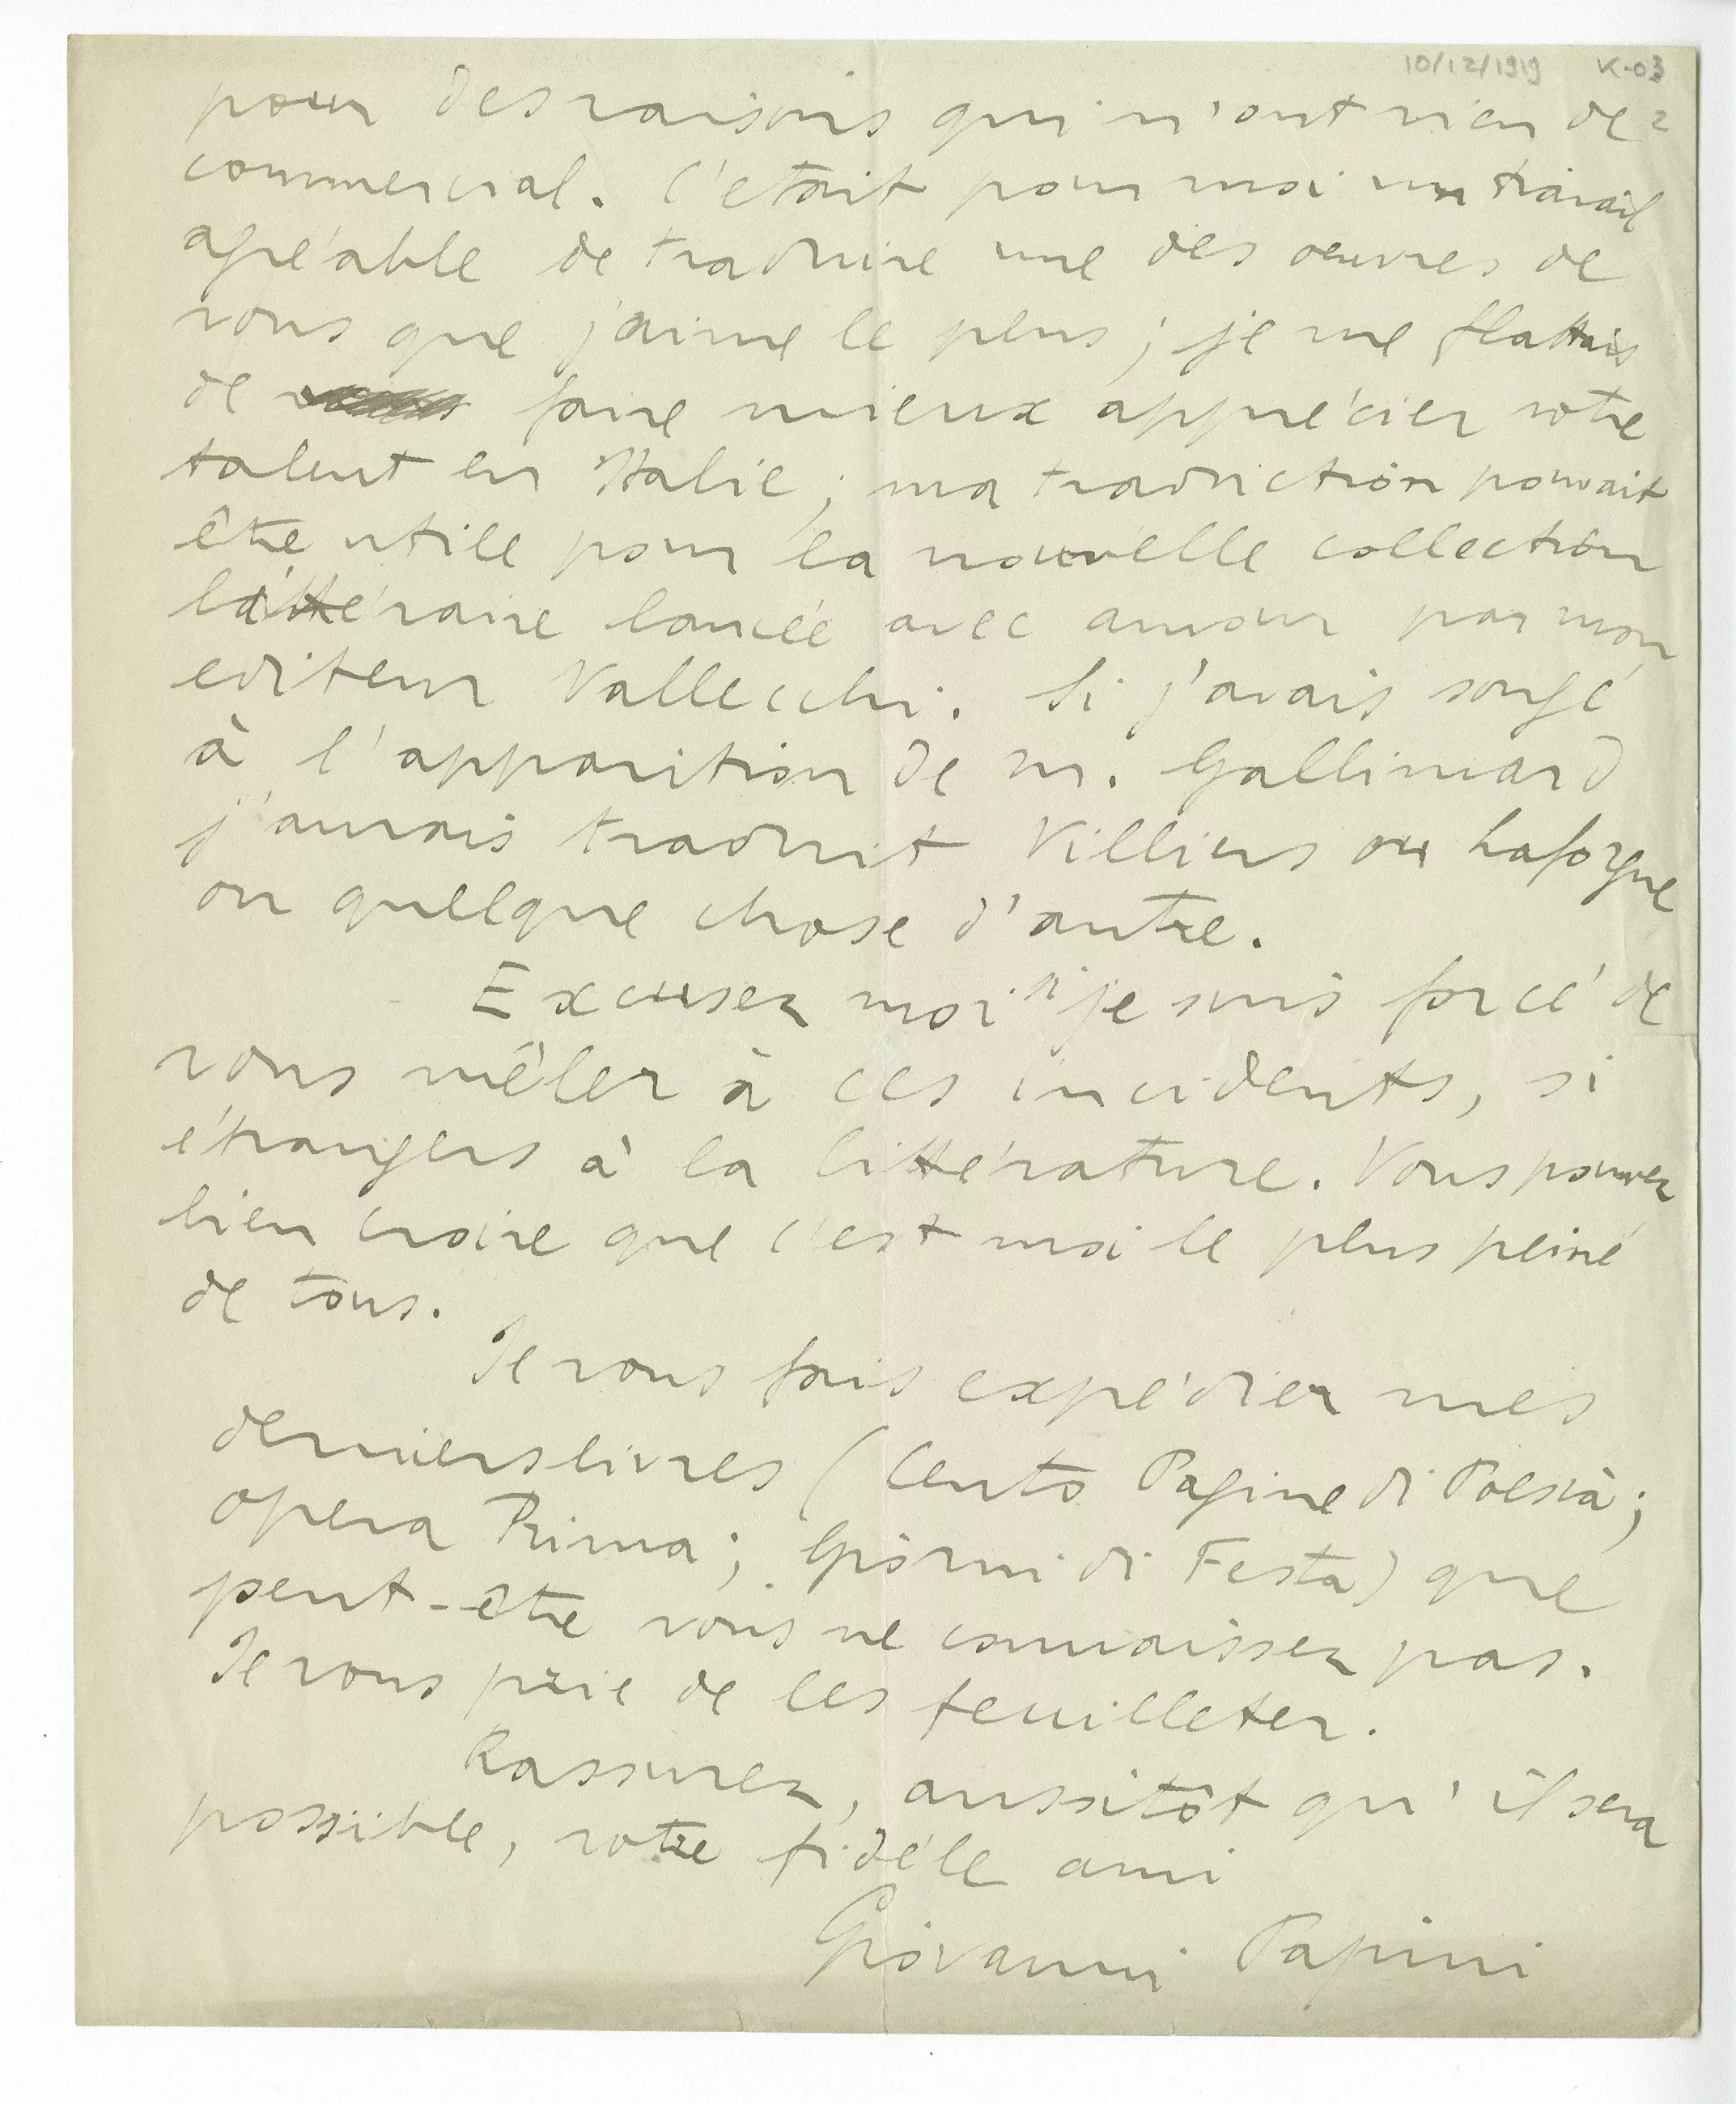 10/12/1919 K-03
2
pour des raisons qui n'ont rien de
commercial. C'etait pour moi un travail
agréable de traduire une des oeuvres de
vous que j'aime le plus; je me flattais
de faire mieux apprécier votre
talent en Italie; ma traduction pouvait
être utile pour la nouvelle collection
littéraire lancée avec amour par mon
editeur Vallecchi. Si j'avais songé
à l'apparition de m. Gallimard
j'aurais traduit Villiers ou Laforgue
ou quelque chose d'autre.
Excusez moi si je suis forcé de
vous mêler à ces incidents, si
étrangers à la littérature. Vous pouvez
bien croire que c'est moi le plus peiné
de tous.
Je vous fais expédier mes
derniers livres (Cento Pagine di Poesia;
opera Prima; Giorni di Festa) que
peut-être vous ne connaissez pas.
Je vous prie de les feuilleter.
Rassurez, aussitôt qu'il sera
possible, votre fidéle ami
Giovanni Papini